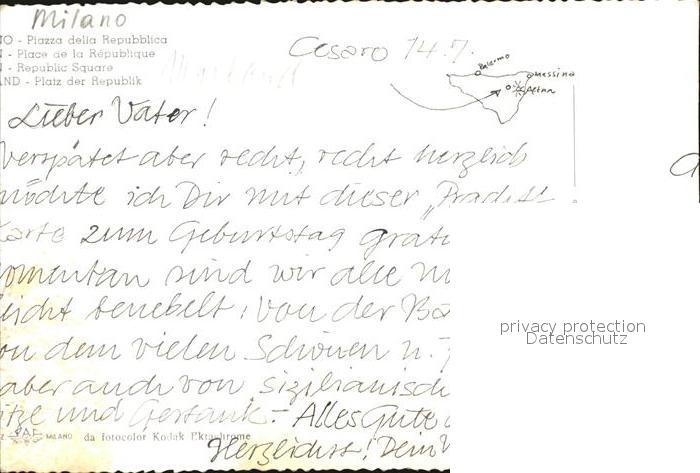 Milano
NO - Piazza della Repubblica
N - Place de la République
N - Republic Square
AND - Platz der Republik
Mailand
Cesaro 14.7.
Palermo
Messina
Aetna
Lieber Vater!
verspätet aber recht, recht herzlich
möchte ich Dir mit dieser
Karte zum Geburtstag
momentan sind wir alle
leicht benebelt, von der
von dem vielen Schönen u.
aber auch von
und Gestank. - Alles Gute
MILANO da fotocolor Kodak Ektachrome
Herzlichst! Dein
privacy protection
Datenschutz